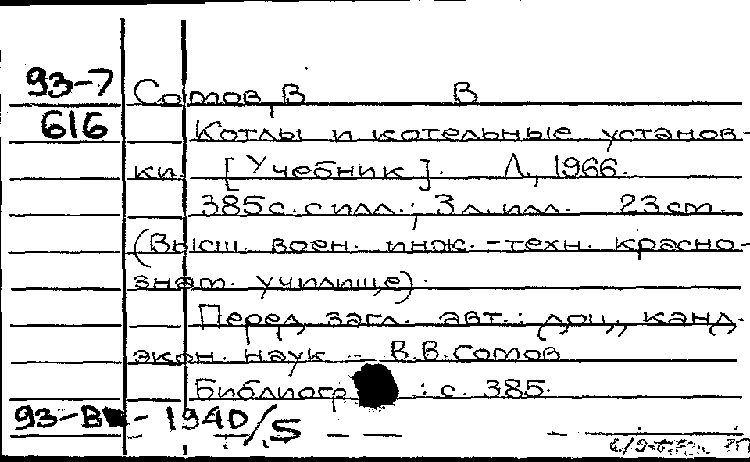 93-7 Сотов, В В
616 Котлы и котельные установ-
ки. [Учебник]. Л., 1966.
385 с. с илл.; 3 л. илл. 23 cm.
(Высш. воен. инж.-техн. красно-
знам. училище).
Перед загл. авт.: доц., канд.
экон. наук - В.В. Сотов
Библиогр : с. 385.
93-В - 1940/5